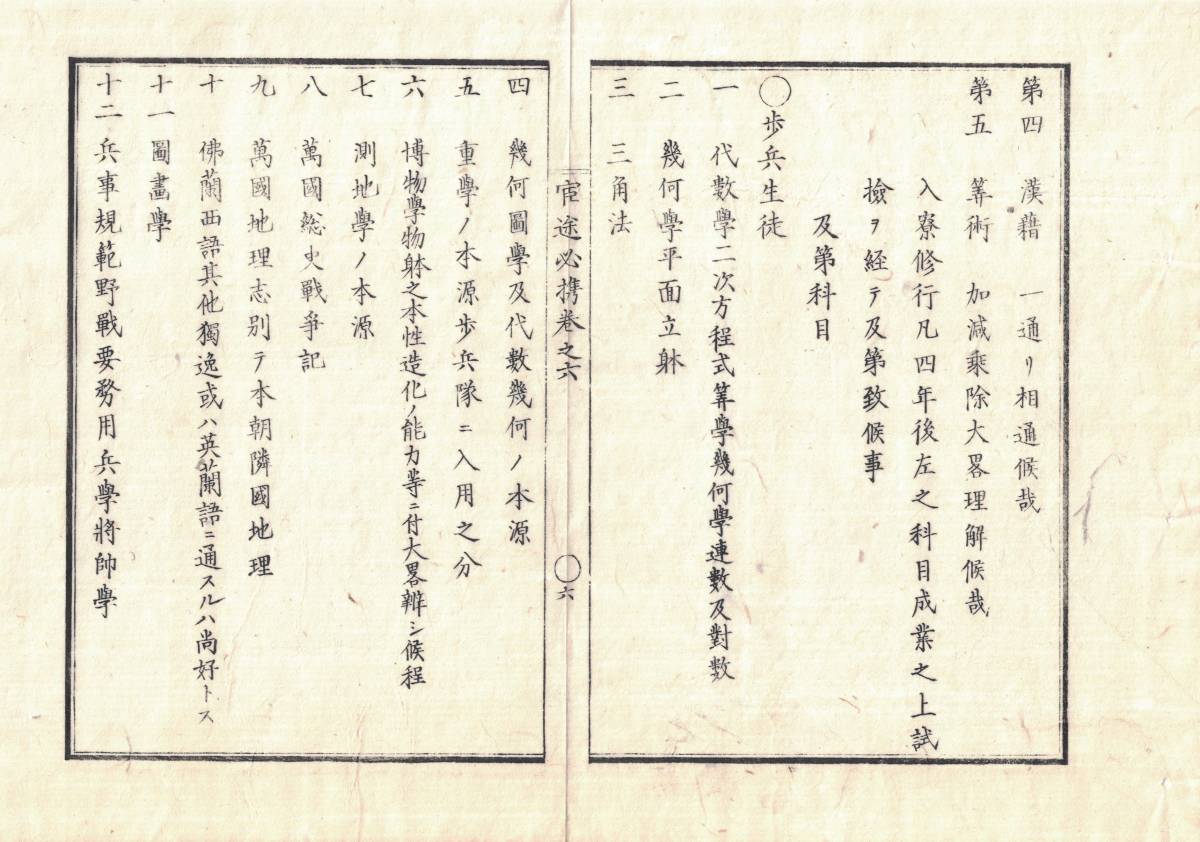 第四 漢藉 一通リ相通候哉
第五 筭術 加減乘除大畧理解候哉
入寮修行凡四年後左之科目成業之上試
撿ヲ経テ及第致候事
及第科目
〇歩兵生徒
一 代數學二次方程式筭學幾何學連數及對數
二 幾何學平面立躰
三 三角法
官途必携巻之六
〇六
四 幾何圖學及代數幾何ノ本源
五 重學ノ本源歩兵隊ニ入用之分
六 博物學物躰之本性造化ノ能力等ニ付大畧辨シ候程
七 測地學ノ本源
八 萬國総史戰爭記
九 萬國地理志別テ本朝隣國地理
十 佛蘭西語其他獨逸或ハ英蘭語ニ通スルハ尚好トス
十一 圖畫學
十二 兵事規範野戰要務用兵學將帥學